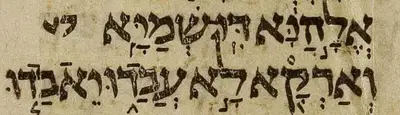 אֱלָהַיָּא דִּי שְׁמַיָּא
וְאַרְקָא לָא עֲבַדוּ יֵאבַדוּ